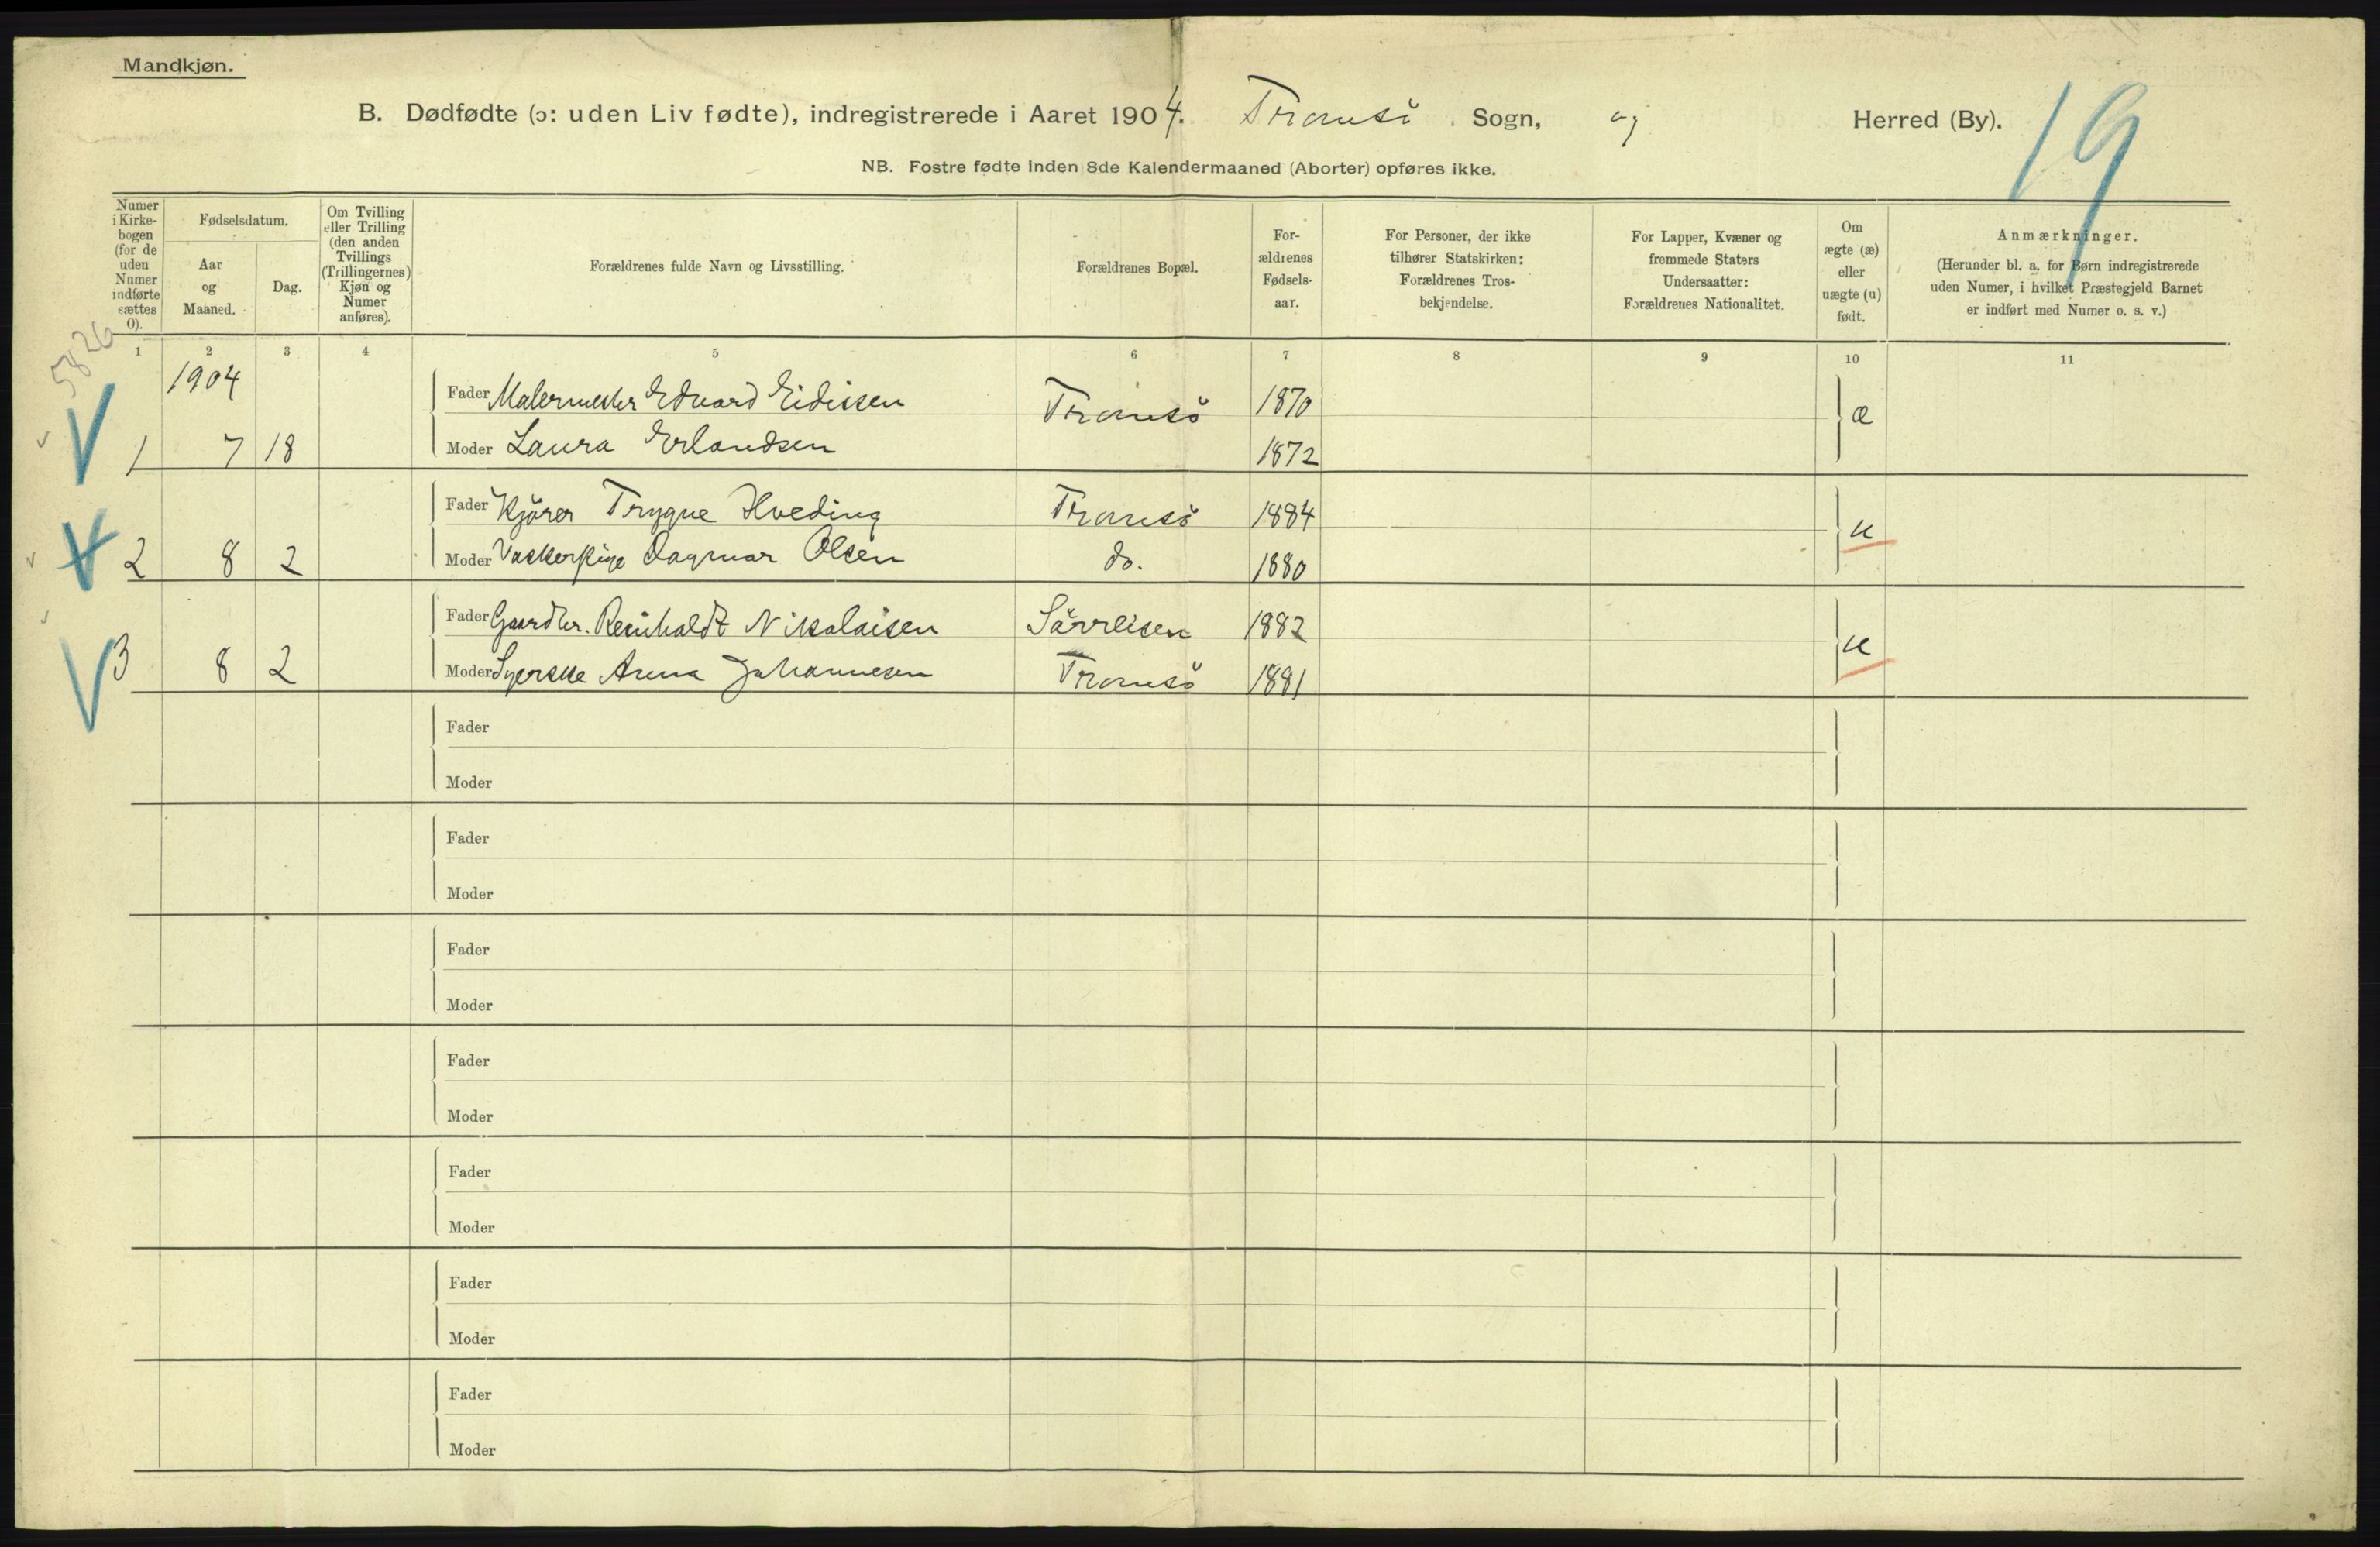 Mandkjøn.
B. Dødfødte (ɔ: uden Liv fødte), indregistrerede i Aaret 1904. Tromsö Sogn, og Herred (By).
19
NB. Fostre fødte inden 8de Kalendermaaned (Aborter) opføres ikke.
Numer i Kirke- bogen (for de uden Numer indførte sættes 0).
Fødselsdatum.
Aar og Maaned.
Dag.
Om Tvilling eller Trilling (den anden Tvillings (Trillingernes) Kjøn og Numer anføres).
Forældrenes fulde Navn og Livsstilling.
Forældrenes Bopæl.
For- ældrenes Fødsels- aar.
For Personer, der ikke tilhører Statskirken: Forældrenes Tros- bekjendelse.
For Lapper, Kvæner og fremmede Staters Undersaatter: Forældrenes Nationalitet.
Om ægte (æ) eller uægte (u) født.
Anmærkninger.
(Herunder bl. a. for Børn indregistrerede uden Numer, i hvilket Præstegjeld Barnet er indført med Numer o. s. v.)
5826
1 2 3 4 5 6 7 8 9 10 11
1904
Fader Malermester Edvard Eidissen Tromsö 1870 æ
1 7 18 Moder Laura Erlandsen 1872
Fader Kjörer Trygve Hveding Tromsö 1884 u
2 8 2 Moder Vaskerpige Dagmar Olsen do. 1880
Fader Gaardbr. Reinholdt Nikolaisen 1882 u
3 8 2 Moder Syerske Anna Johannesen Tromsö 1881
Fader
Moder
Fader
Moder
Fader
Moder
Fader
Moder
Fader
Moder
Fader
Moder
Fader
Moder